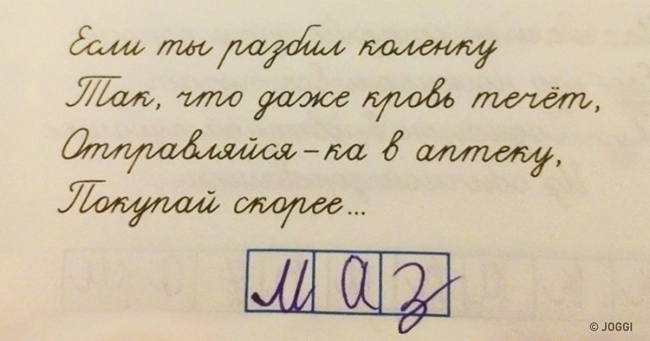 Если ты разбил коленку
Так, что даже кровь течёт,
Отправляйся-ка в аптеку,
Покупай скорее...
маз
© JOGGI